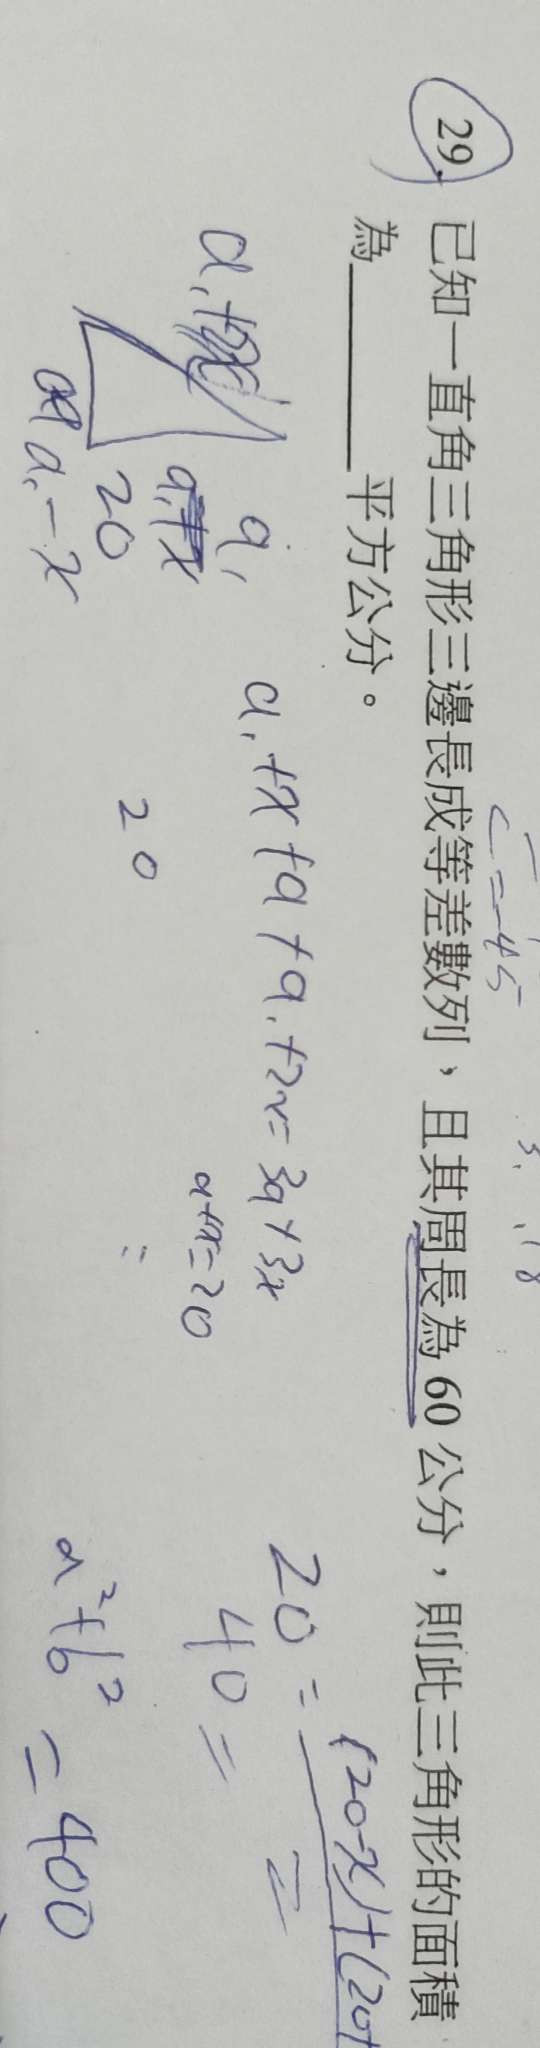 29. 已知一直角三角形三邊長成等差數列，且其周長為 60 公分，則此三角形的面積
為________平方公分。
a₁
20
a₁-x
a₁+x+a+a₁+2x=3a+3x
a+x=20
20
20=(20-x)+(20+
40=
=
a²+b²=400